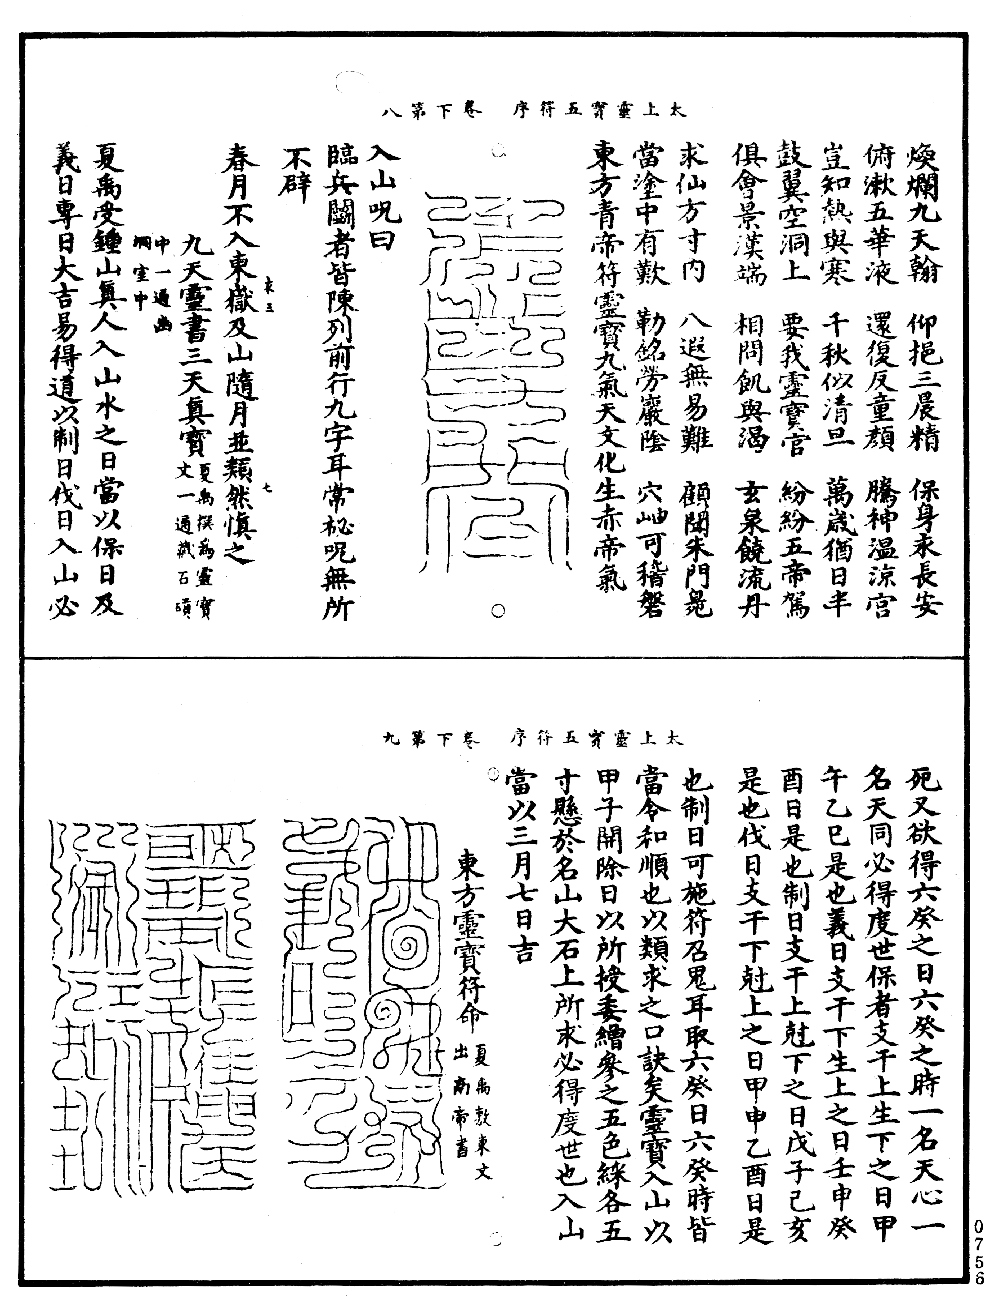 太上靈寳五符序　卷下第八
煥爛九天翰　仰挹三晨精　保身永長安
俯漱五華液　還復反童顏　騰神温凉宫
豈知熱與寒　千秋似清旦　萬歲猶日半
鼓翼空洞上　要我靈寳官　紛紛五帝駕
俱會景漢端　相問飢與渴　玄泉饒流丹
求仙方寸内　八遐無易難　顧閞朱門晃
當塗中有歎　勒銘勞巖陰　穴岫可稽磐
東方青帝符靈寳九氣天文化生赤帝氣
入山呪曰
臨兵鬭者皆陳列前行九字耳常祕呪無所
不辟
春月不入東嶽及山隨月並類然慎之
衣五
七
九天靈書三天真寳夏禹撰爲靈寳
文一通藏石磧
中一通幽
洞室中
夏禹受鍾山真人入山水之日當以保日及
義日專日大吉易得道以制日伐日入山必
太上靈寳五符序　卷下第九
死又欲得六癸之日六癸之時一名天心一
名天同必得度世保者支干上生下之日甲
午乙巳是也義日支干下生上之日壬申癸
酉日是也制日支干上尅下之日戊子己亥
是也伐日支干下尅上之日甲申乙酉日是
也制日可施符召鬼耳取六癸日六癸時皆
當令和順也以類求之口訣矣靈寳入山以
甲子開除日以所授委繒參之五色綵各五
寸懸於名山大石上所求必得度世也入山
當以三月七日吉
東方靈寳符命夏禹敷東文
出南帝書
0756